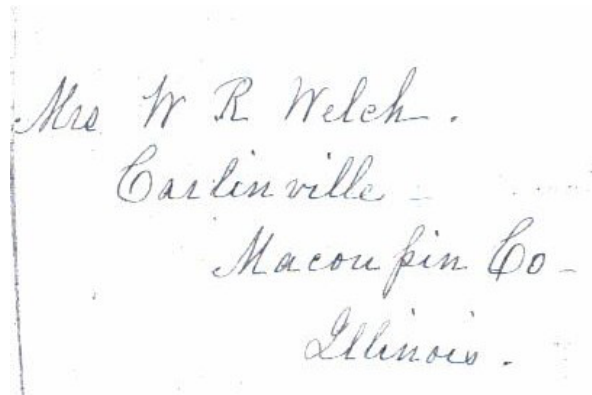 Mrs W R Welch.
Carlinville -
Macoupin Co -
Illinois.